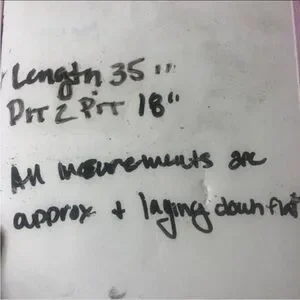 Length 35"
PIT 2 PIT 18"
All mesurements are
approx + laying down flat